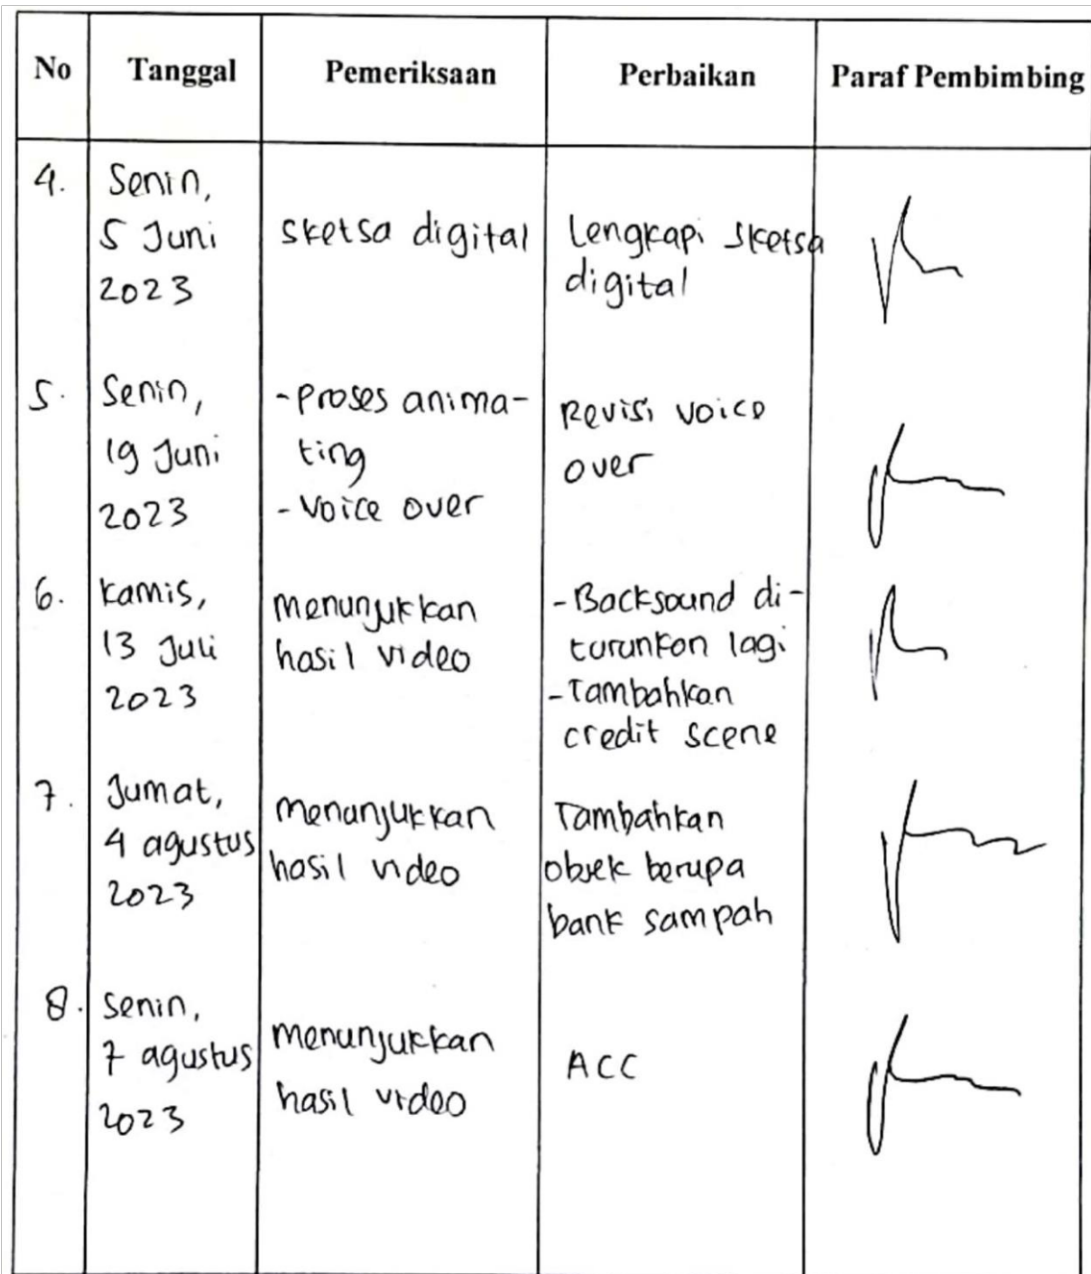 No Tanggal Pemeriksaan Perbaikan Paraf Pembimbing
4. Senin,
5 Juni
2023
sketsa digital
Lengkapi sketsa
digital
5. Senin,
19 Juni
2023
-Proses anima-
ting
-Voice over
Revisi voice
over
6. Kamis,
13 Juli
2023
menunjukkan
hasil video
-Backsound di-
turunkan lagi
-Tambahkan
credit scene
7. Jumat,
4 agustus
2023
menunjukkan
hasil video
Tambahkan
objek berupa
bank sampah
8. Senin,
7 agustus
2023
menunjukkan
hasil video
ACC